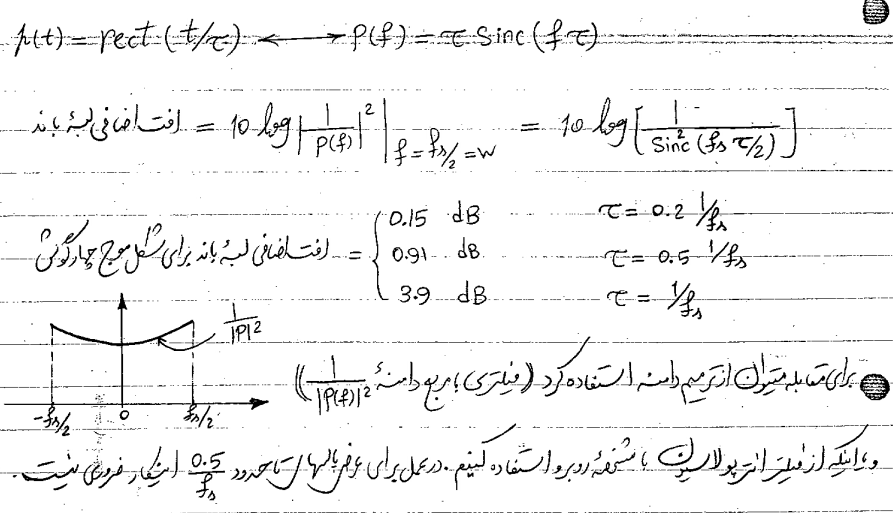 p(t) = rect(t/τ) ⟷ P(f) = τ Sinc(fτ)
افت اضافی لبهٔ باند = 10 log |1/P(f)|² |f=fs/2=W = 10 log [1/Sinc²(fs τ/2)]
افت اضافی لبهٔ باند برای شکل موج چهارگوش = { 0.15 dB τ = 0.2 1/fs
0.91 dB τ = 0.5 1/fs
3.9 dB τ = 1/fs
1/|P|²
-fs/2 0 fs/2
برای مقابله میتوان از ترمیم دامنه استفاده کرد (فیلتری با مربع دامنهٔ 1/|P(f)|²)
و یا اینکه از فیلتر انترپولاسیون با مشخصهٔ روبرو استفاده کنیم. در عمل برای عرض پالسهای تا حدود 0.5/fs اینکار ضروری نیست.